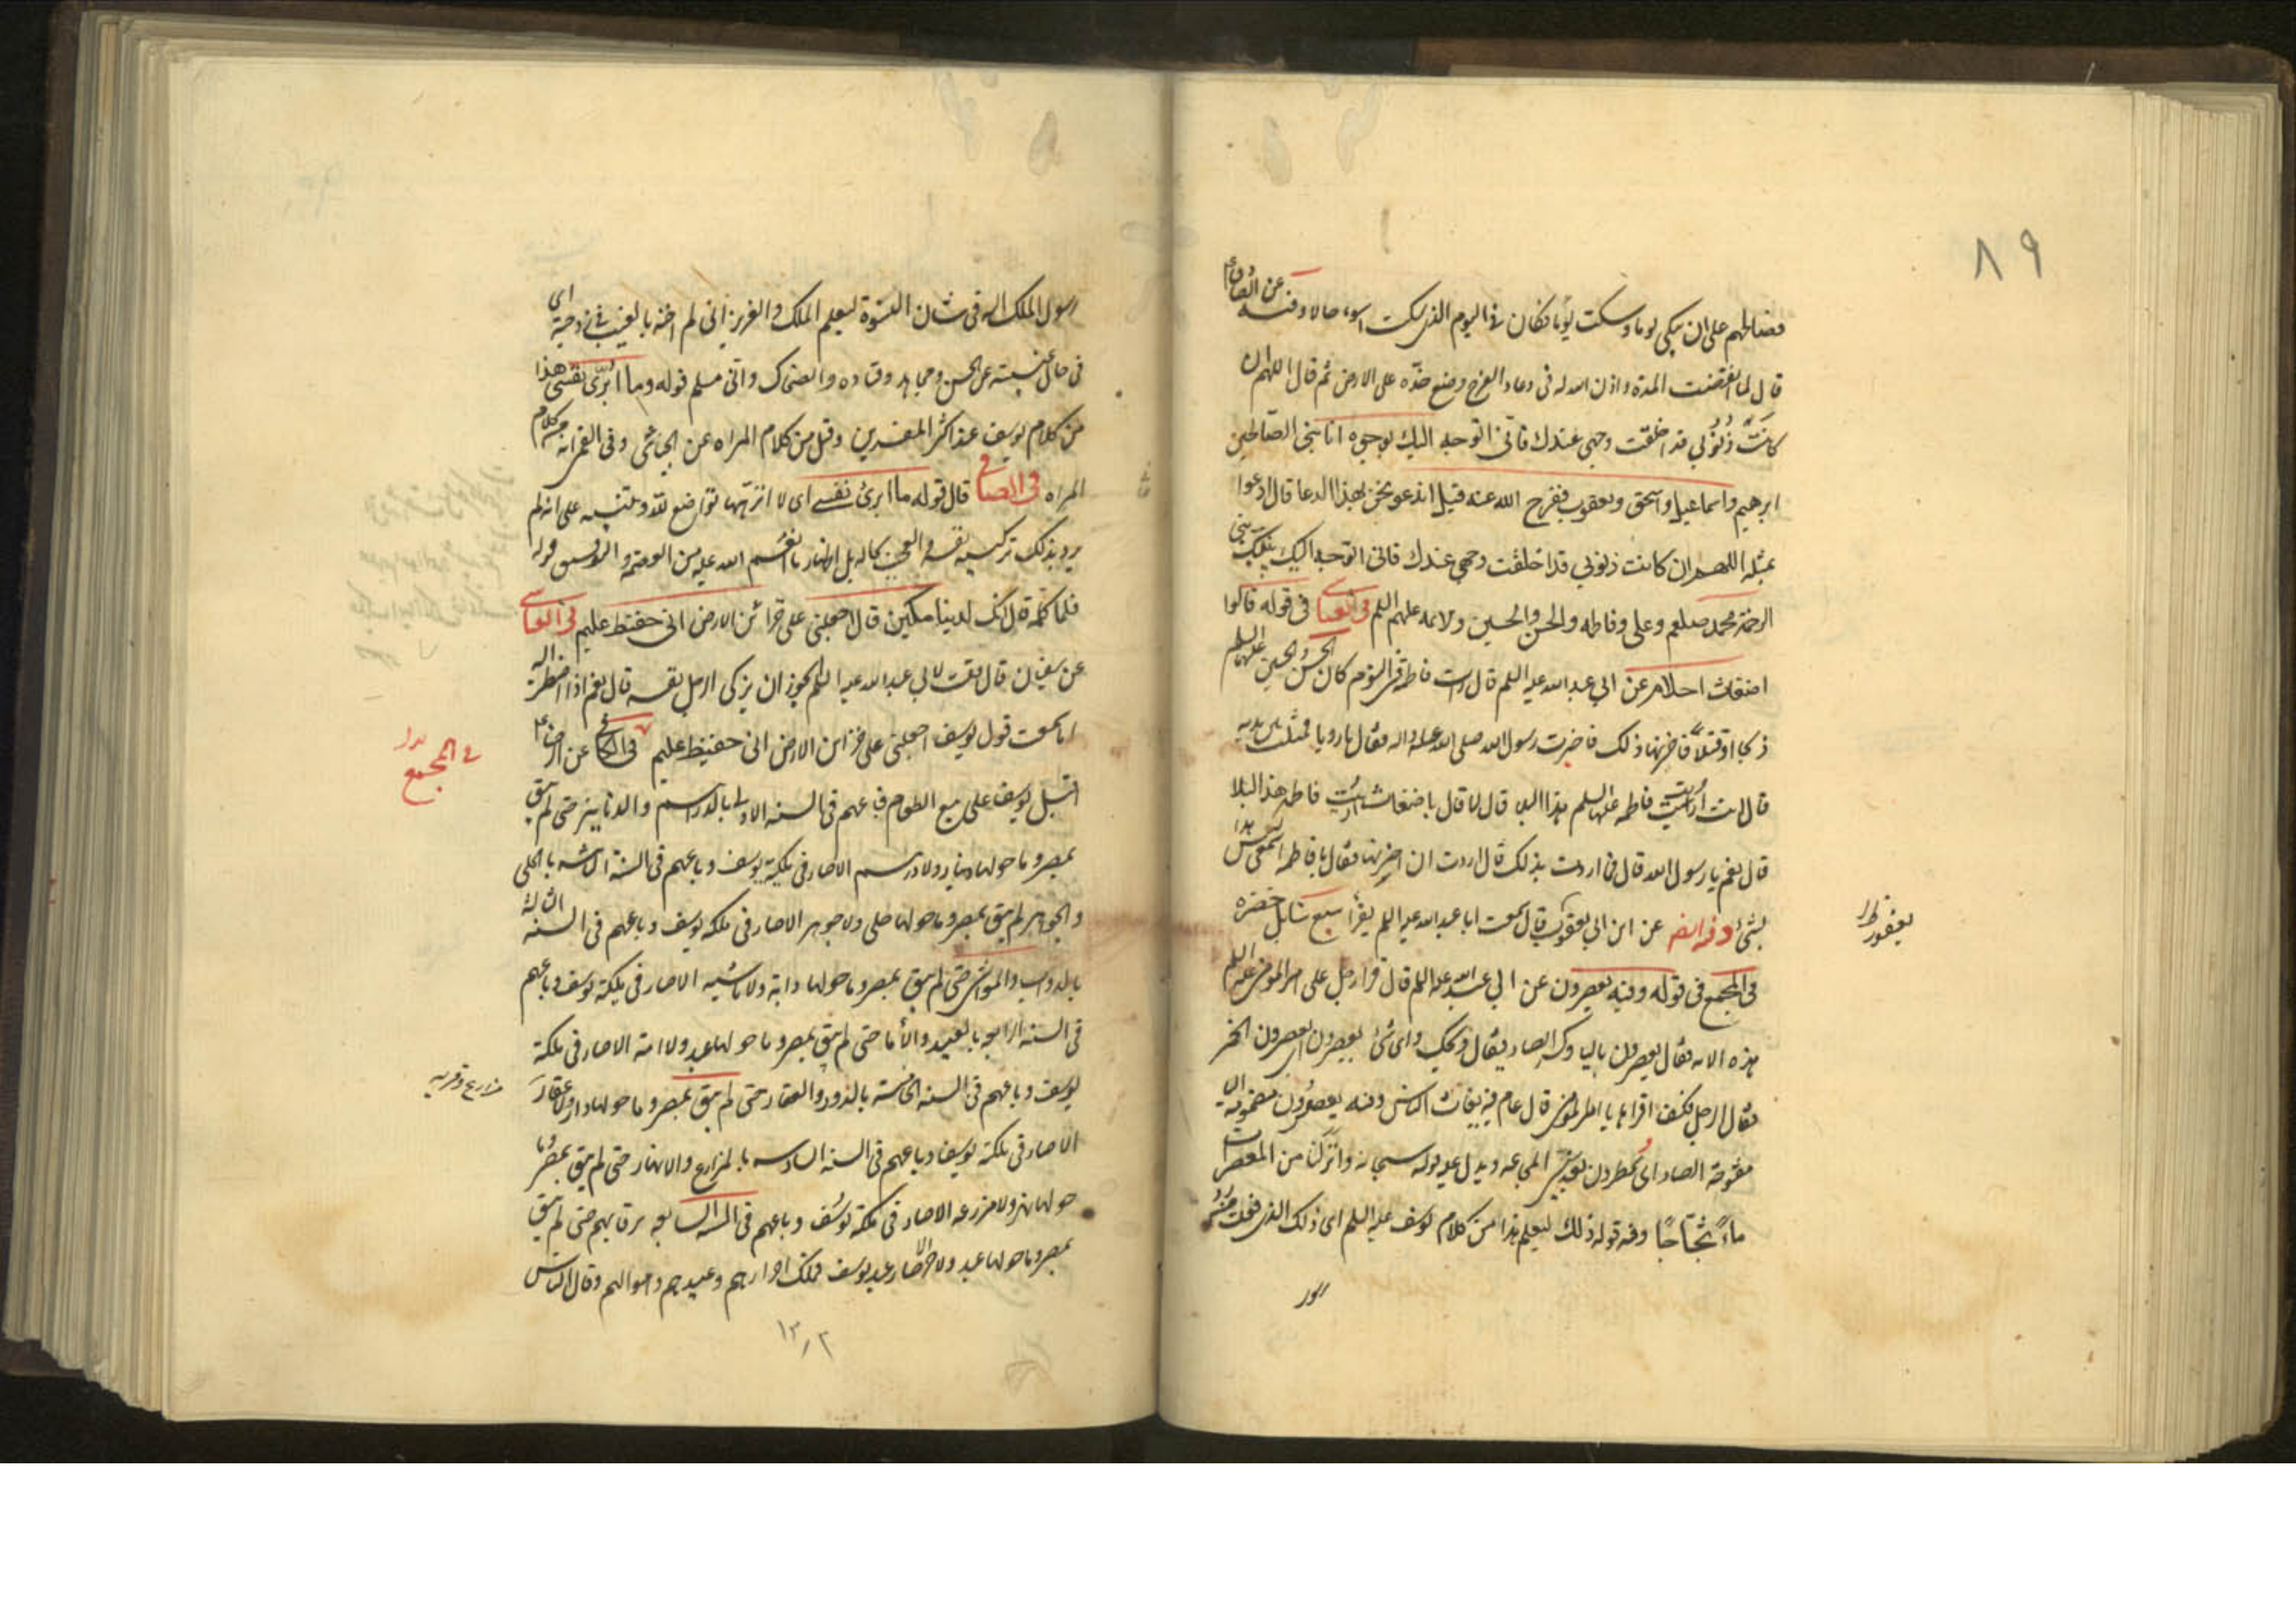 ٨٩
فصالحهم على ان يبكى يوما ويسكت يوما فكان فى اليوم الذى يسكت اسوء حالا وفيه عن الصادق ع
قال لما انقضت المدة واذن الله له فى دعاء الفرج وضع خده على الارض ثم قال اللهم ان
كانت ذنوبي قد اخلقت وجهى عندك فانى اتوجه اليك بوجوه ابائى الصالحين
ابرهيم واسماعيل واسحق ويعقوب ففرج الله عنه قيل اندعو نحن بهذا الدعا قال ادعوا
بمثله اللهم ان كانت ذنوبي قد اخلقت وجهى عندك فانى اتوجه اليك بنبيك نبى
الرحمة محمد صلعم وعلى وفاطمه والحسن والحسين والائمه عليهم السلم فى العياشى فى قوله قالوا
اضغاث احلام عن ابي عبد الله عليه السلم قال رات فاطمة فى النوم كان الحسن والحسين عليهما السلم
ذبحا او قتلا فاحزنها ذلك فاخبرت رسول الله صلى الله عليه واله فقال يا رويا فمثلت بين يديه
قال انت اريت فاطمه عليها السلم هذا البلا قال لا قال يا اضغاث انت اريت فاطمه هذا البلا
قال نعم يا رسول الله قال فما اردت بذلك قال اردت ان احزنها فقال يا فاطمه اسمعى ليس هذا
بشئ وفيه ايضا عن ابن ابي يعقوب قال سمعت ابا عبد الله عليه السلم يقرأ سبع سنابل خضره
يعفور ظ
فى المجمع فى قوله وفيه يعصرون عن ابي عبد الله عليه السلم قال قرا رجل على امير المومنين عليه السلم
هذه الايه فقال يعصرون باليا وكسر الصاد فقال ويحك واى شئ يعصرون ايعصرون الخمر
فقال الرجل فكيف اقراها يا امير المومنين قال عام فيه يغاث الناس وفيه يعصرون مضمومة اليا
مفتوحة الصاد اى يمطرون بعد سنى المجاعه ويدل عليه قوله سبحانه وانزلنا من المعصرات
ماء ثجاجا وفيه قوله ذلك ليعلم هذا من كلام يوسف عليه السلم اى ذلك الذى فعلت من رد
رسول الملك اليه فى شان النسوة ليعلم الملك او العزيز انى لم اخنه بالغيب فى زوجته اى
فى حال غيبته عن الحسن ومجاهد وقتاده والضحاك وابي مسلم قوله وما ابرئ نفسى هذا
من كلام يوسف عند اكثر المفسرين وقيل من كلام المراه عن الجبائى وفى القمى انه من كلام
المراه فى الصافى قال قوله ما ابرئ نفسى اى لا انزهها تواضع لله وتنبيه على انه لم
يرد بذلك تزكيه نفسه والعجب بحاله بل اظهار ما انعم الله عليه من العصمة والتوفيق قوله
فلما كلمه قال انك لدينا مكين قال اجعلنى على خزائن الارض انى حفيظ عليم فى العياشى
عن سفيان قال قلت لابي عبد الله عليه السلم يجوز ان يزكى الرجل نفسه قال نعم اذا اضطر اليه
اما سمعت قول يوسف اجعلنى على خزائن الارض انى حفيظ عليم عن الرضا ع
فى المجمع
اقبل يوسف على جمع الطعام فباعهم فى السنه الاولى بالدراهم والدنانير حتى لم يبق
بمصر وما حولها دينار ولا درهم الا صار فى ملكية يوسف وباعهم فى السنة الثانيه بالحلى
والجواهر لم يبق بمصر وما حولها حلى ولا جوهر الا صار فى ملكه يوسف وباعهم فى السنه الثالثة
بالدواب والمواشى حتى لم يبق بمصر وما حولها دابة ولا ماشيه الا صار فى ملكية يوسف وباعهم
فى السنه الرابعه بالعبيد والأما حتى لم يبق بمصر وما حولها عبد ولا امة الا صار فى ملكة
يوسف وباعهم فى السنه الخامسة بالدور والعقار حتى لم يبق بمصر وما حولها دار ولا عقار
مزارع وقريه
الا صار فى ملكة يوسف وباعهم فى السنه السادسه بالمزارع والانهار حتى لم يبق بمصر وما
حولها نهر ولا مزرعه الا صار فى ملكة يوسف وباعهم فى السنه السابعه برقابهم حتى لم يبق
بمصر وما حولها عبد ولا حر الا صار عبد يوسف فملك احرارهم وعبيدهم واموالهم وقال الناس